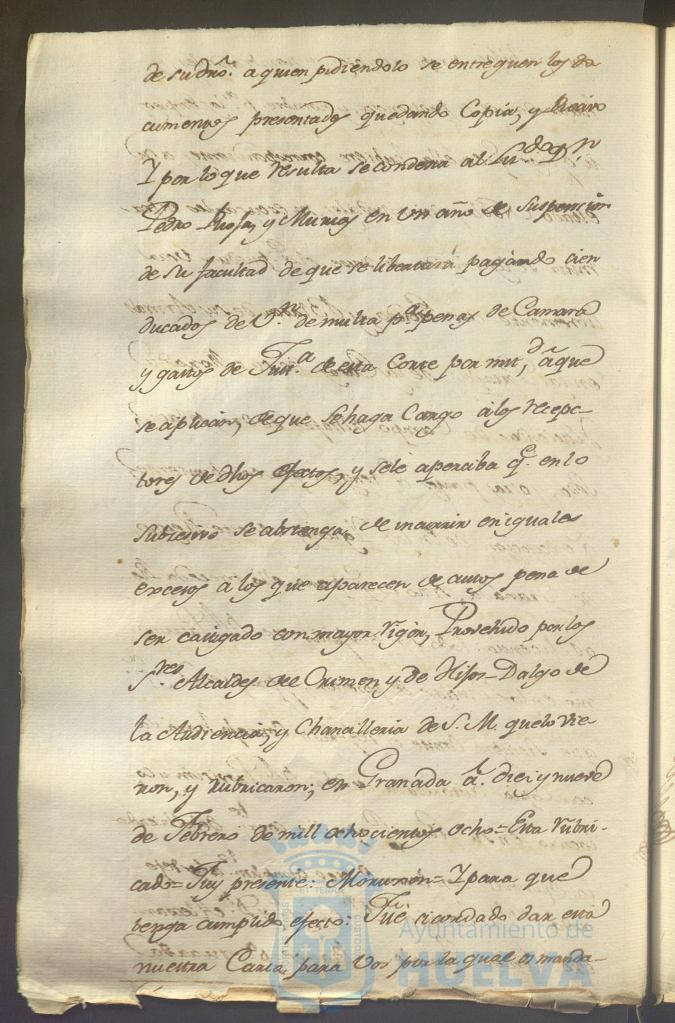 de su dro. a quien pidiéndolo se entreguen los do
cumentos presentados quedando Copia, y Recivo
Y por lo que resulta se condena al Lizdo. Dn
Pedro Rioja, y Muxica en un año de suspencion
de su facultad de que se libertará pagando cien
ducados de Vn. de multa pa. penas de Camara
y gastos de Justa. de esta Corte por mitd, â que
se aplican, de que se haga Cargo à los recepc-
tores de dhos efectos, y se le aperciba qe. en lo
subcesivo se abstenga, de incurrir en iguales
excesos a los que aparecen de autos pena de
ser castigado con mayor rigor, Provehido por los
Sres Alcaldes del Crimen y de Hijos-Dalgo de
la Audiencia, y Chancilleria de S. M. que lo vie-
ron, y rubricaron, en Granada â diez y nueve
de Febrero de mill ochocientos ocho = Esta rubri-
cado = Fuy presente: = Y para que
tenga cumplido efecto: Fué acordado dar esta
nuestra Carta para Vos por la qual os manda-
Ayuntamiento de
HUELVA